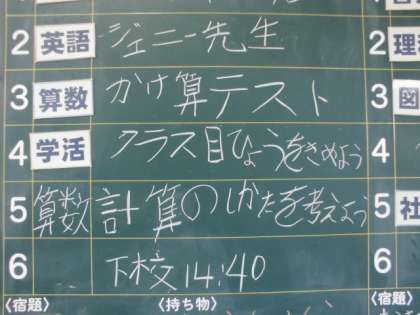 2 英語 ジェニー先生 2 理
3 算数 かけ算テスト 3 図
4 学活 クラス目ひょうをきめよう 4
5 算数 計算のしかたを考えよう 5 社
6 下校14:40 6
〈宿題〉 〈持ち物〉 〈宿題〉